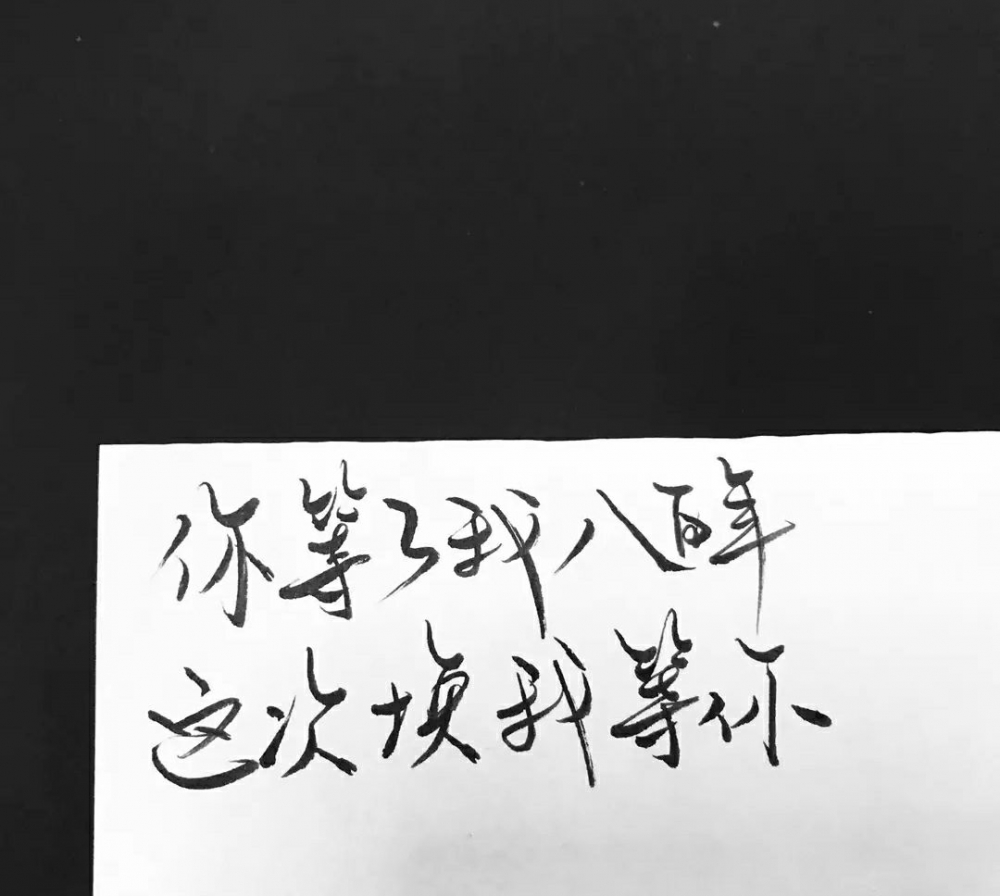 你等了我八百年
这次换我等你